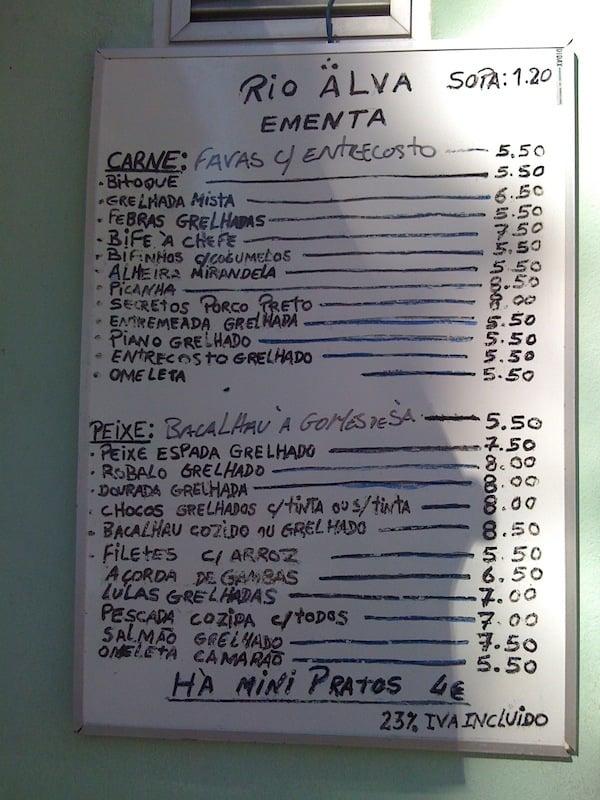 RIO ÄLVA SOPA: 1.20
EMENTA
CARNE: FAVAS C/ ENTRECOSTO 5.50
• BITOQUE 5.50
• GRELHADA MISTA 6.50
• FEBRAS GRELHADAS 5.50
• BIFE À CHEFE 7.50
• BIFINHOS C/COGUMELOS 5.50
• ALHEIRA MIRANDELA 5.50
• PICANHA 8.50
• SECRETOS PORCO PRETO 8.00
• ENTREMEADA GRELHADA 5.50
• PIANO GRELHADO 5.50
• ENTRECOSTO GRELHADO 5.50
• OMELETA 5.50
PEIXE: BACALHAU À GOMES DE SÀ 5.50
• PEIXE ESPADA GRELHADO 7.50
• ROBALO GRELHADO 8.00
• DOURADA GRELHADA 8.00
• CHOCOS GRELHADOS C/TINTA OU S/TINTA 8.00
• BACALHAU COZIDO OU GRELHADO 8.50
• FILETES C/ ARROZ 5.50
AÇORDA DE GAMBAS 6.50
LULAS GRELHADAS 7.00
PESCADA COZIDA C/TODOS 7.00
SALMÃO GRELHADO 7.50
OMELETA CAMARÃO 5.50
HÀ MINI PRATOS 4€
23% IVA INCLUIDO